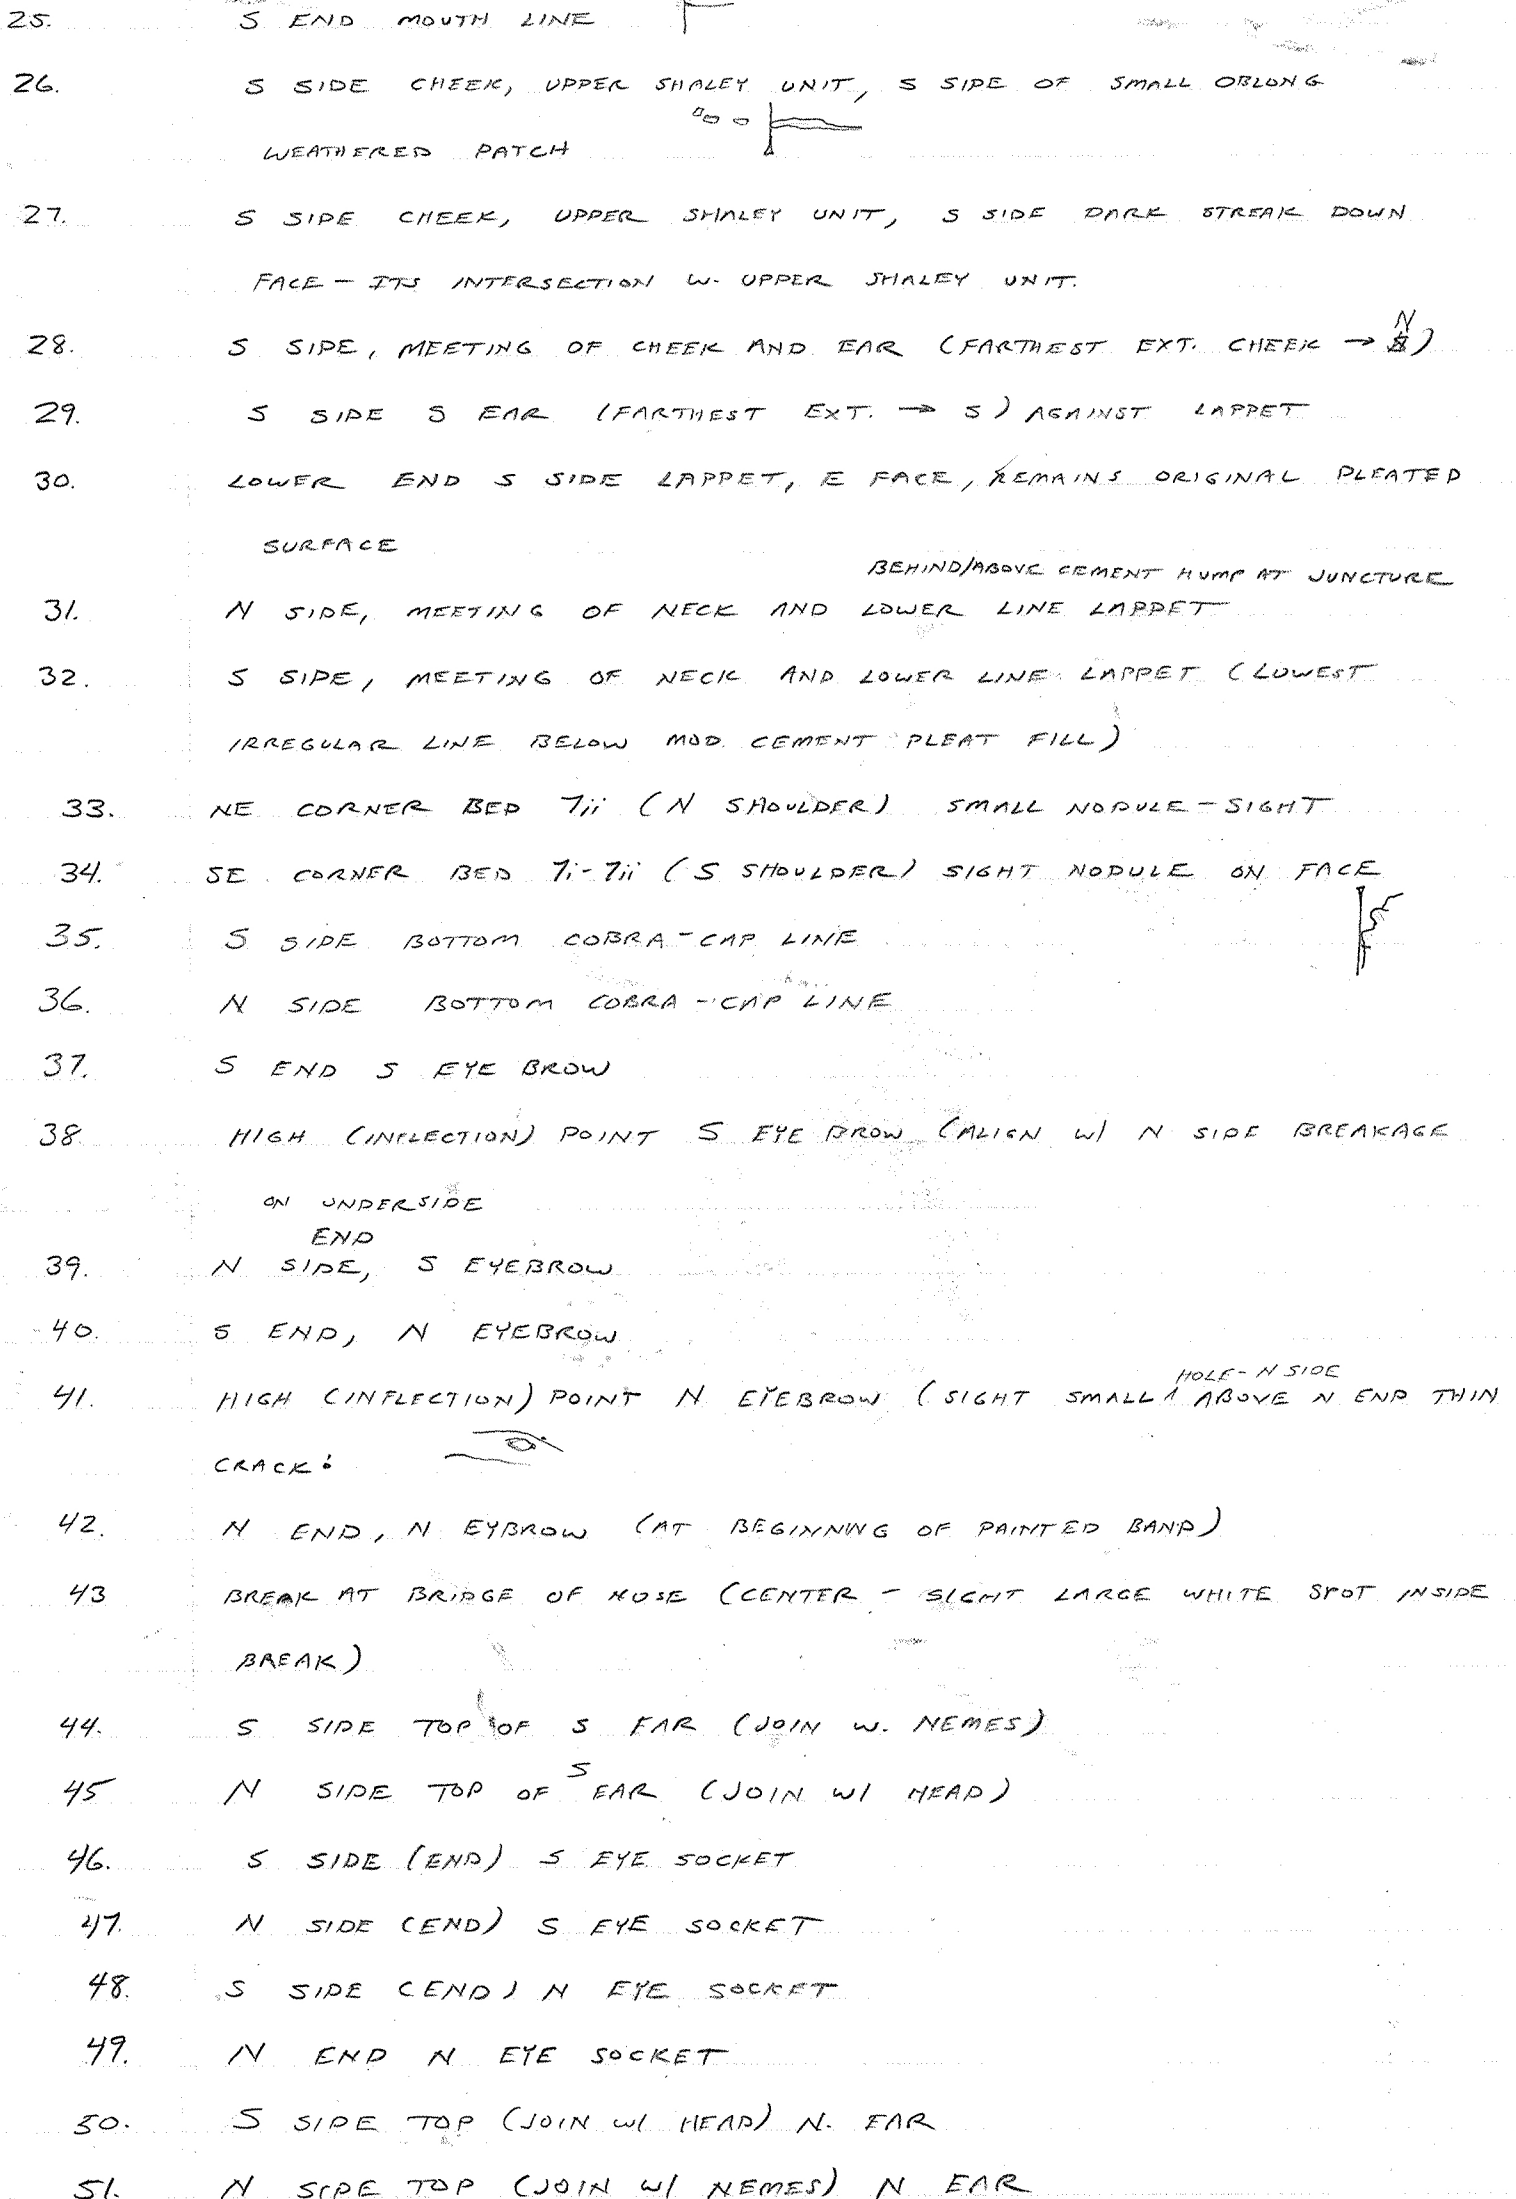 25. S END MOUTH LINE
26. S SIDE CHEEK, UPPER SHALEY UNIT, S SIDE OF SMALL OBLONG
WEATHERED PATCH
27. S SIDE CHEEK, UPPER SHALEY UNIT, S SIDE DARK STREAK DOWN
FACE — ITS INTERSECTION W. UPPER SHALEY UNIT.
28. S SIDE, MEETING OF CHEEK AND EAR (FARTHEST EXT. CHEEK → N)
29. S SIDE S EAR (FARTHEST EXT. → S) AGAINST LAPPET
30. LOWER END S SIDE LAPPET, E FACE, REMAINS ORIGINAL PLEATED
SURFACE
BEHIND/ABOVE CEMENT HUMP AT JUNCTURE
31. N SIDE, MEETING OF NECK AND LOWER LINE LAPPET
32. S SIDE, MEETING OF NECK AND LOWER LINE LAPPET (LOWEST
IRREGULAR LINE BELOW MOD. CEMENT PLEAT FILL)
33. NE CORNER BED 7ii (N SHOULDER) SMALL NODULE — SIGHT
34. SE CORNER BED 7i-7ii (S SHOULDER) SIGHT NODULE ON FACE
35. S SIDE BOTTOM COBRA-CAP LINE
36. N SIDE BOTTOM COBRA-CAP LINE
37. S END S EYE BROW
38. HIGH (INFLECTION) POINT S EYE BROW (ALIGN W/ N SIDE BREAKAGE
ON UNDERSIDE
END
39. N SIDE, S EYEBROW
40. S END, N EYEBROW
HOLE - N SIDE
41. HIGH (INFLECTION) POINT N EYEBROW (SIGHT SMALL ^ ABOVE N END THIN
CRACK:
42. N END, N EYBROW (AT BEGINNING OF PAINTED BAND)
43 BREAK AT BRIDGE OF NOSE (CENTER — SIGHT LARGE WHITE SPOT INSIDE
BREAK)
44. S SIDE TOP OF S EAR (JOIN W. NEMES)
S
45 N SIDE TOP OF EAR (JOIN W/ HEAD)
46. S SIDE (END) S EYE SOCKET
47. N SIDE (END) S EYE SOCKET
48. S SIDE (END) N EYE SOCKET
49. N END N EYE SOCKET
50. S SIDE TOP (JOIN W/ HEAD) N. EAR
51. N SIDE TOP (JOIN W/ NEMES) N EAR